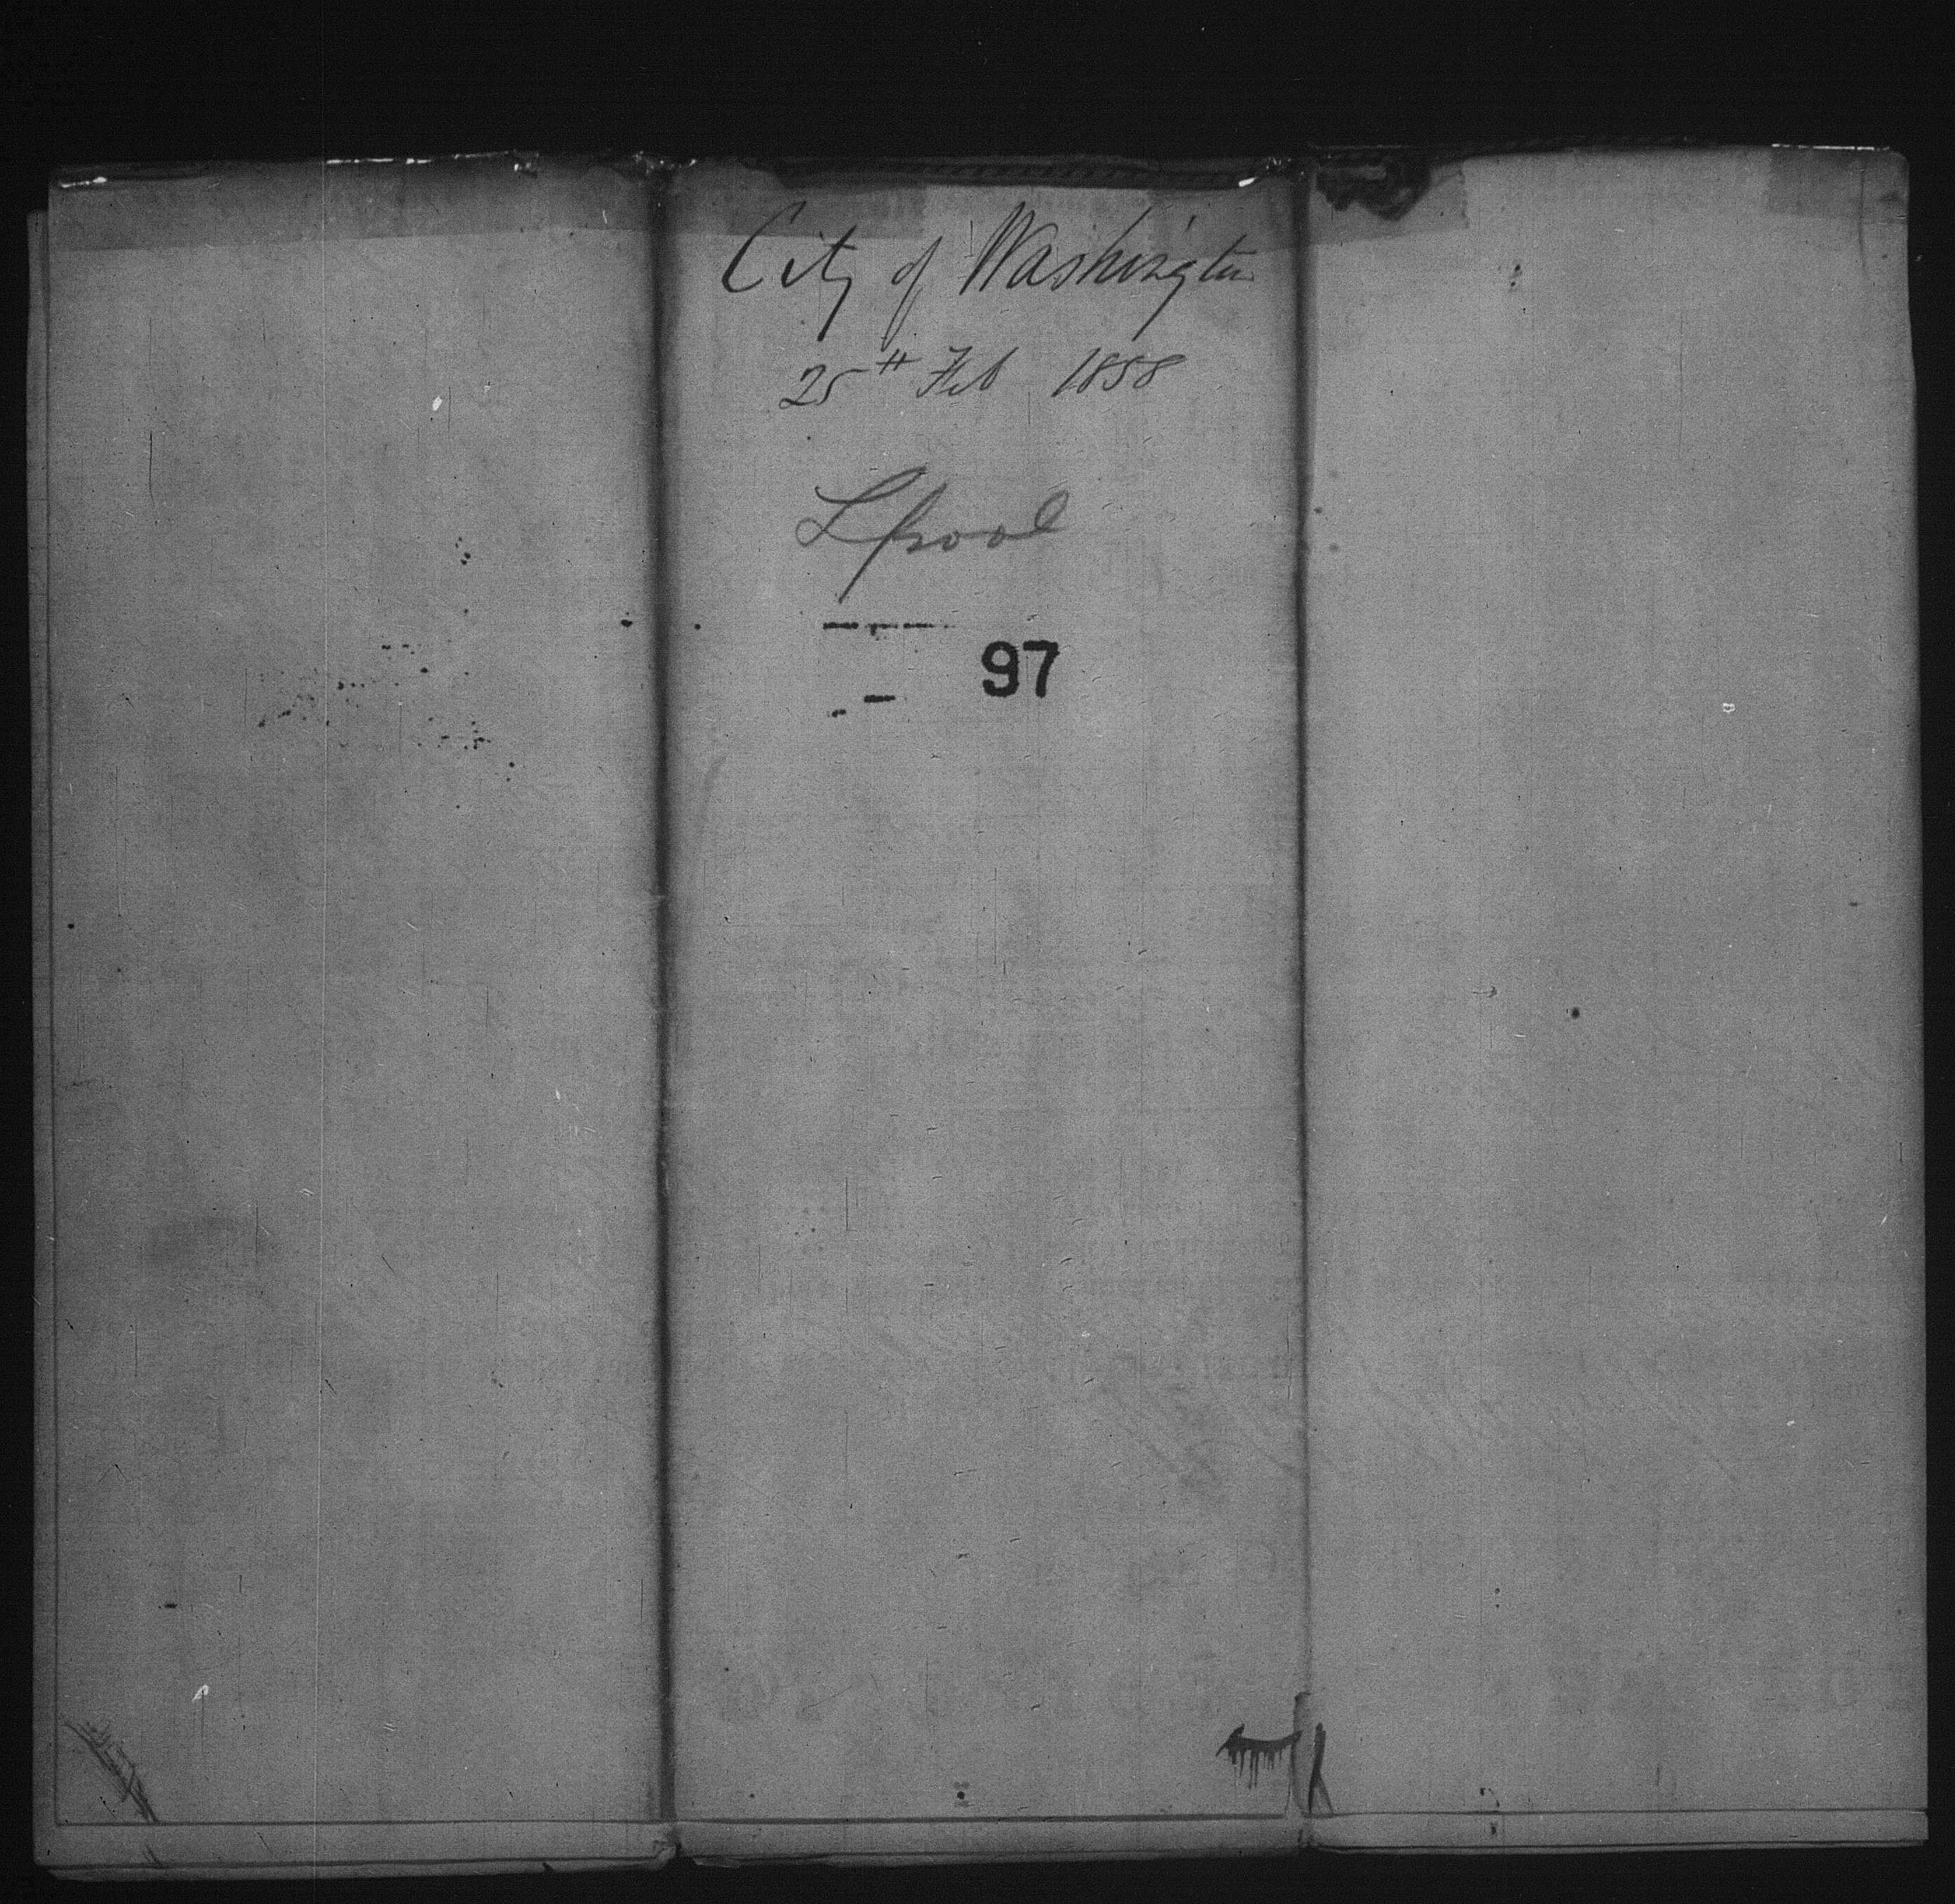 City of Washington
25th Feb 1858
Lpool
97